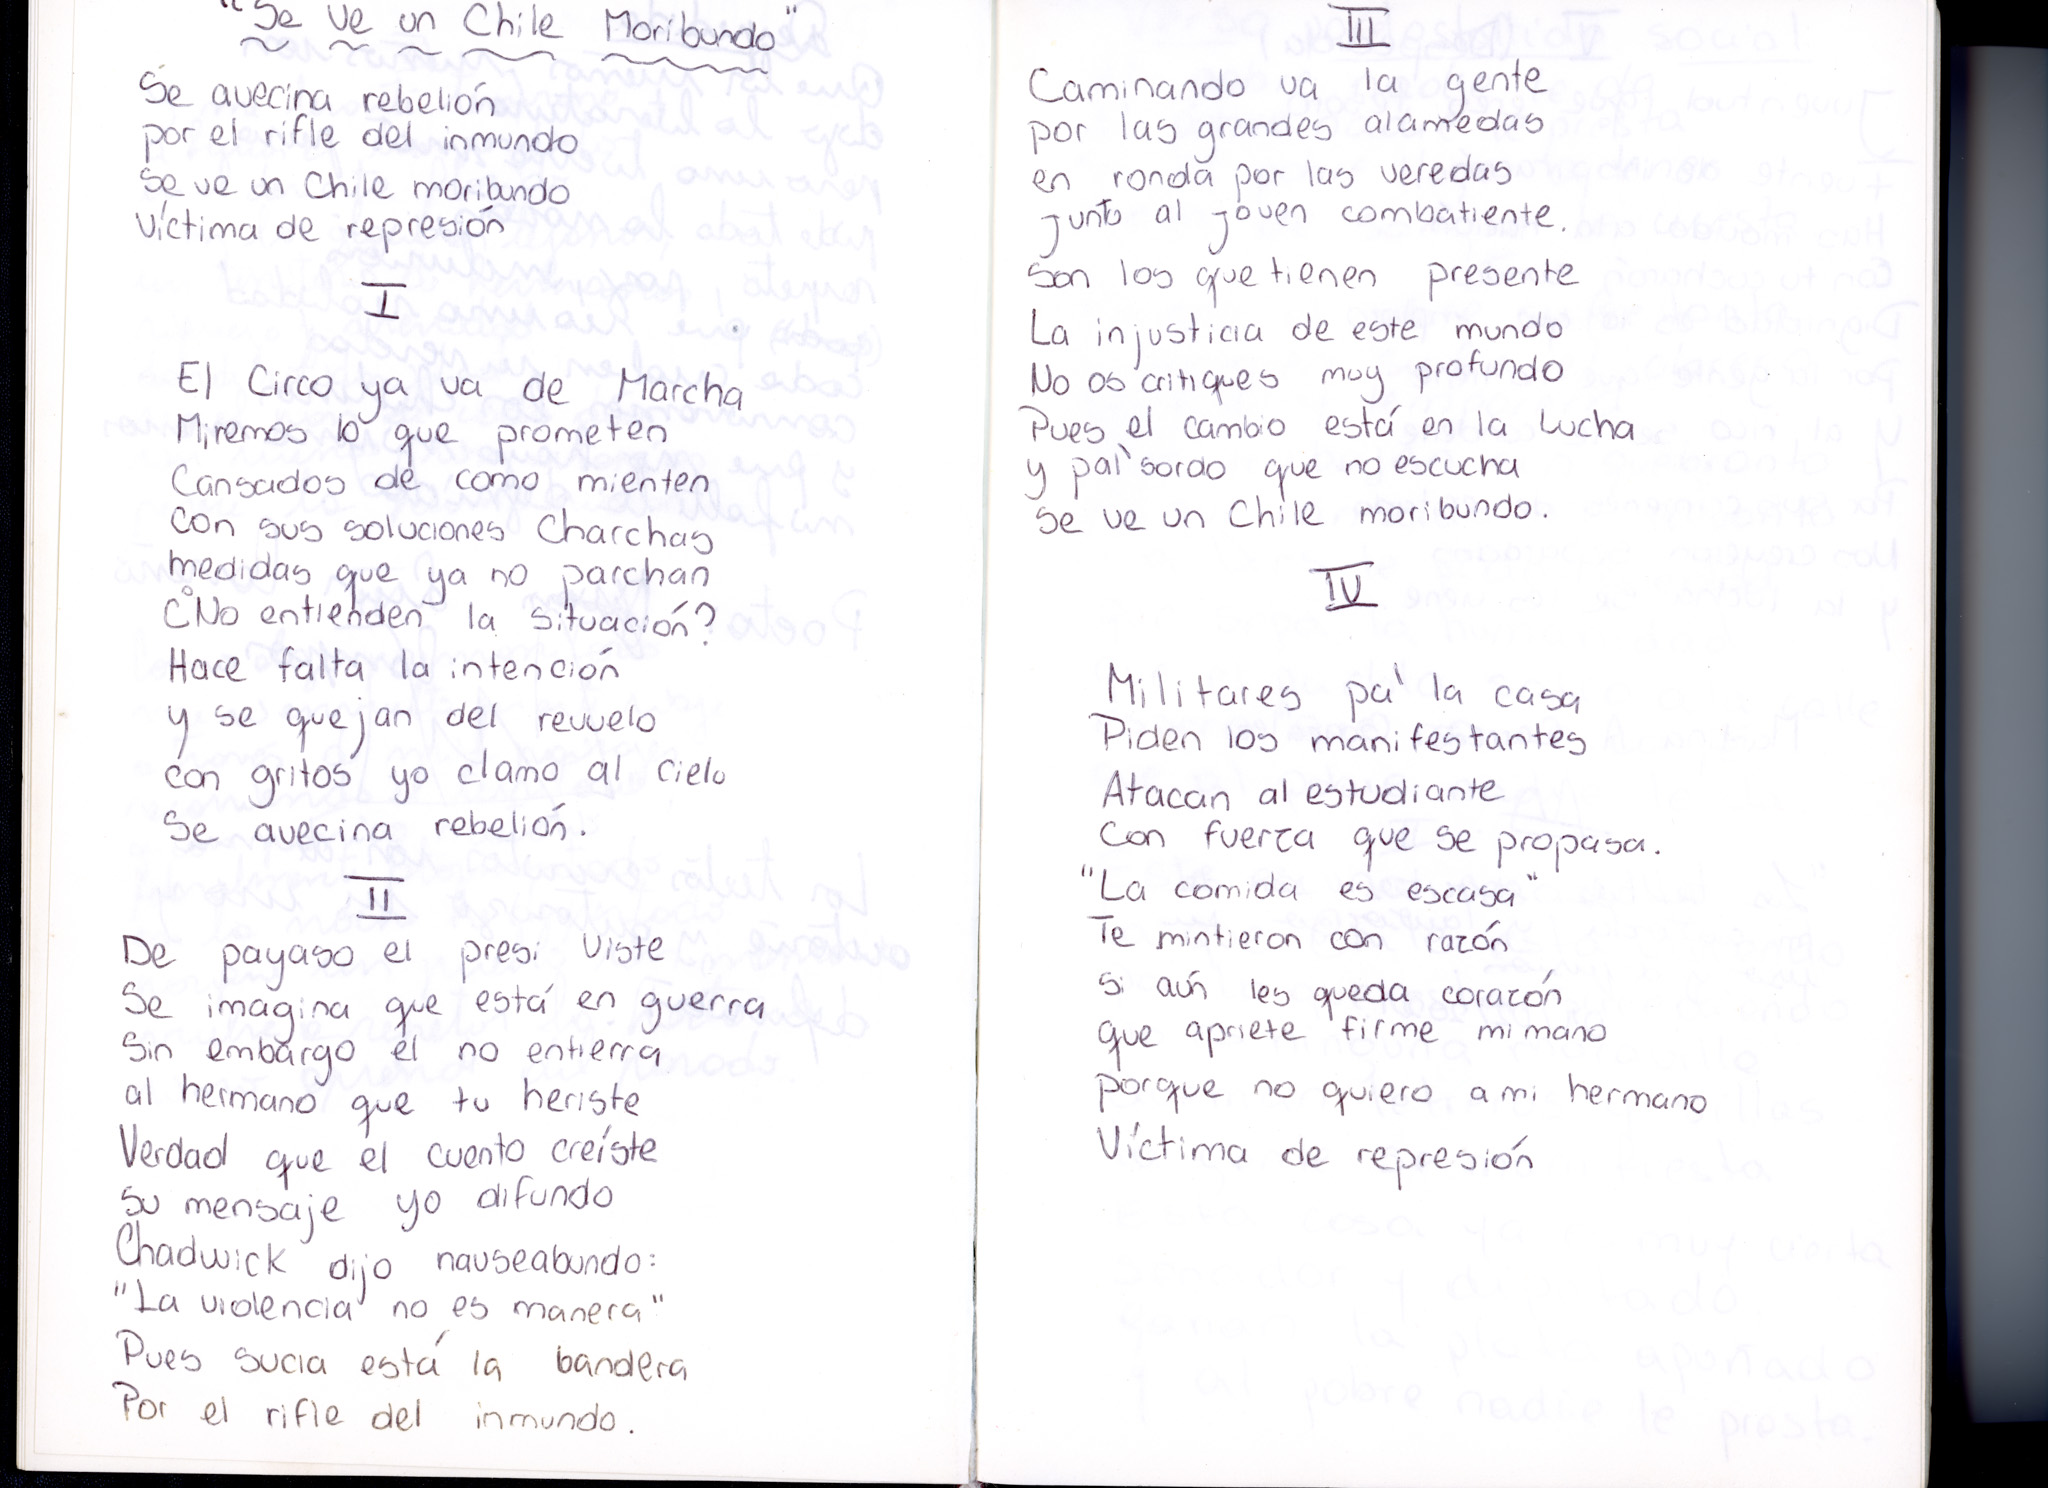 "Se Ve un Chile Moribundo"
Se avecina rebelión
por el rifle del inmundo
Se ve un Chile moribundo
Víctima de represión
I
El Circo ya va de Marcha
Miremos lo que prometen
Cansados de como mienten
con sus soluciones Charchas
medidas que ya no parchan
¿No entienden la situación?
Hace falta la intención
y se quejan del revuelo
con gritos yo clamo al cielo
Se avecina rebelión.
II
De payaso el presi viste
Se imagina que está en guerra
Sin embargo el no entierra
al hermano que tu heriste
Verdad que el cuento creíste
su mensaje yo difundo
Chadwick dijo nauseabundo:
"La violencia no es manera"
Pues sucia está la bandera
Por el rifle del inmundo.
III
Caminando va la gente
por las grandes alamedas
en ronda por las veredas
junto al joven combatiente.
Son los que tienen presente
La injusticia de este mundo
No os critiques muy profundo
Pues el cambio está en la lucha
y pal' sordo que no escucha
Se ve un Chile moribundo.
IV
Militares pa' la casa
Piden los manifestantes
Atacan al estudiante
con fuerza que se propasa.
"La comida es escasa"
Te mintieron con razón
Si aún les queda corazón
que apriete firme mi mano
porque no quiero a mi hermano
Víctima de represión